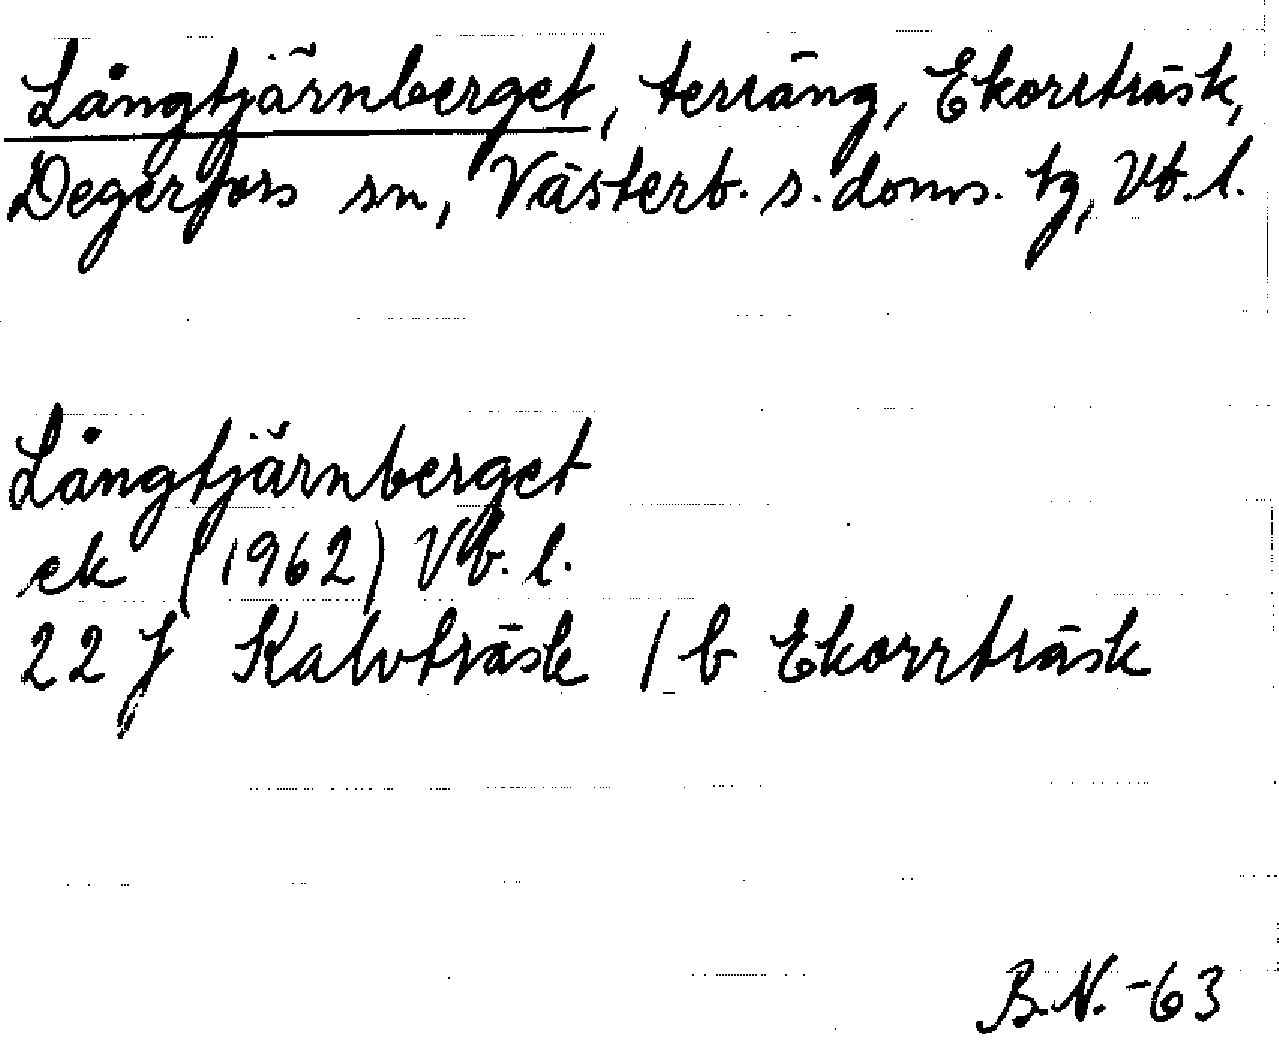 Långtjärnberget, terräng, Ekorrträsk,
Degerfors sn, Västerb. s. doms. tg, Vb. l.
Långtjärnberget
ek (1962) Vb. l.
22 J Kalvträsk 1 b Ekorrträsk
B.N. -63